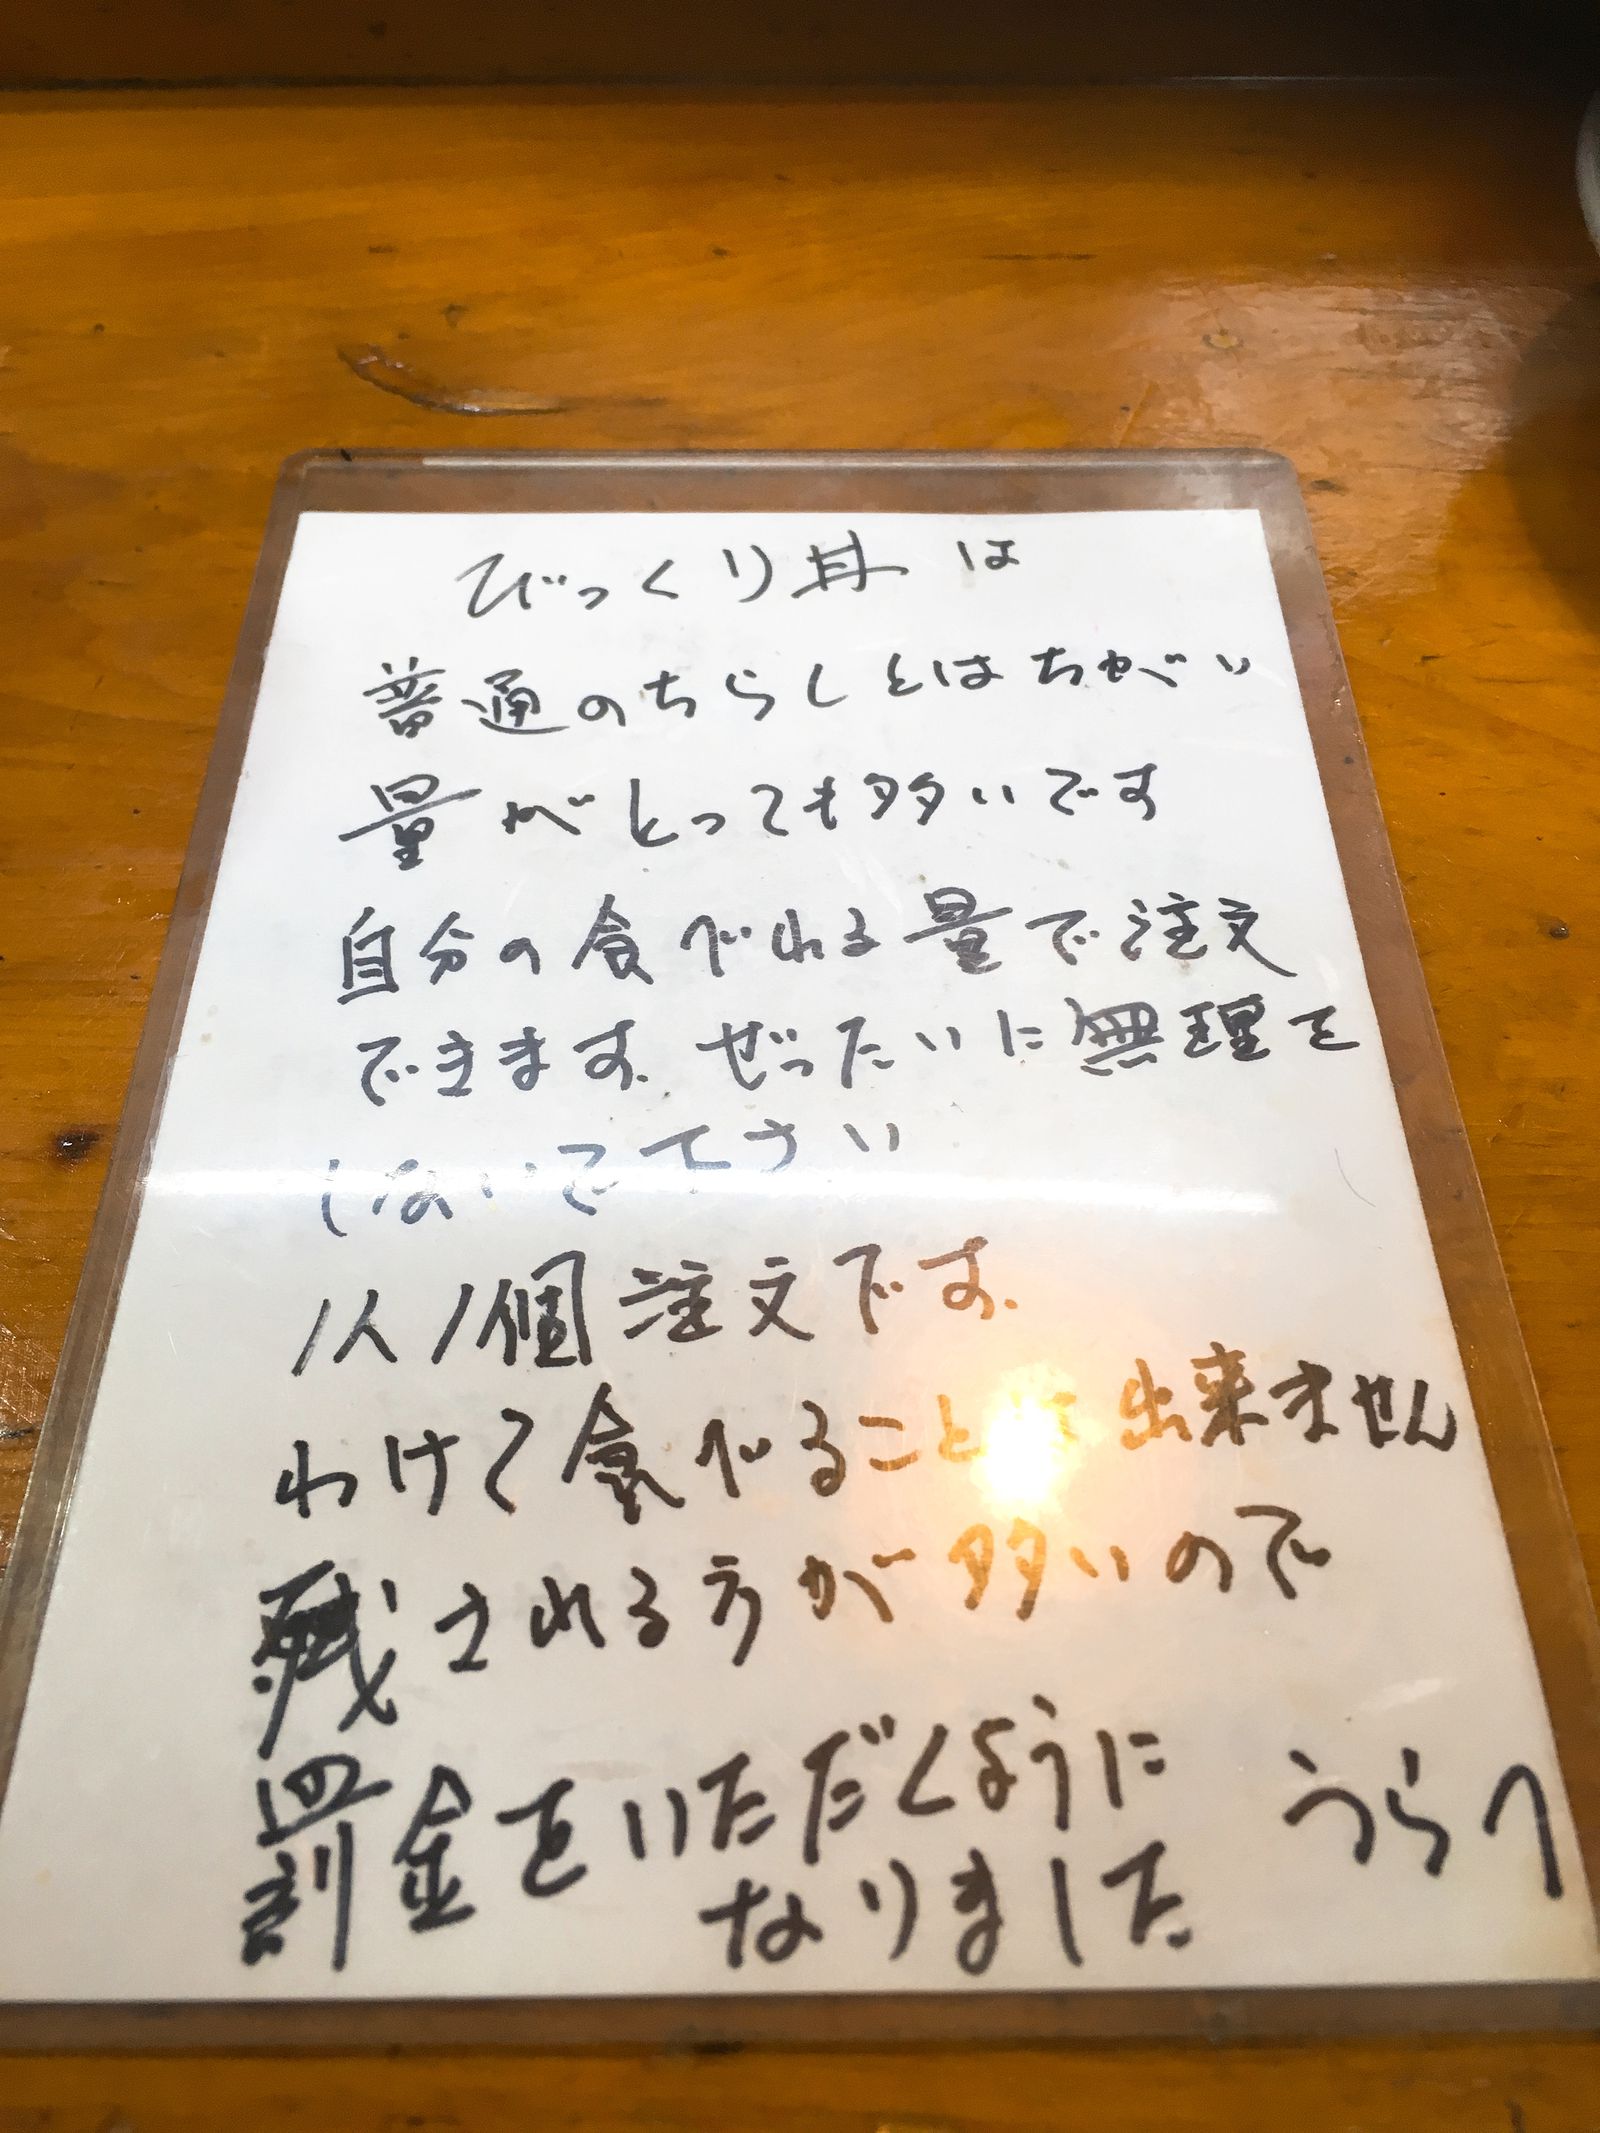 びっくり丼は
普通のちらしとはちがい
量がとっても多いです
自分の食べれる量で注文
できます。ぜったいに無理を
しないで下さい
1人1個注文です。
わけて食べること 出来ません
残される方が多いので
罰金をいただくように
なりました
うらへ